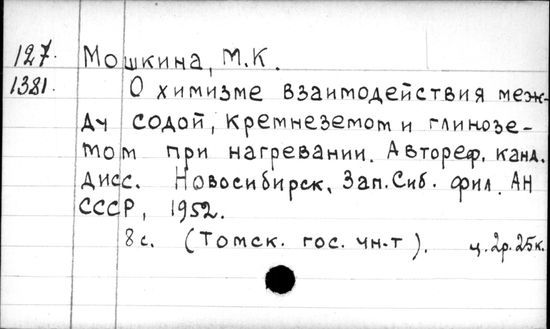 127. Мошкина, М.К.
1381. О химизме взаимодействия меж-
ду содой, кремнеземом и глинозе-
мом при нагревании. Автореф. канд.
дисс. Новосибирск, Зап. Сиб. фил. АН
СССР, 1952.
8 с. (Томск. гос. ун-т). ц. 2р. 25к.